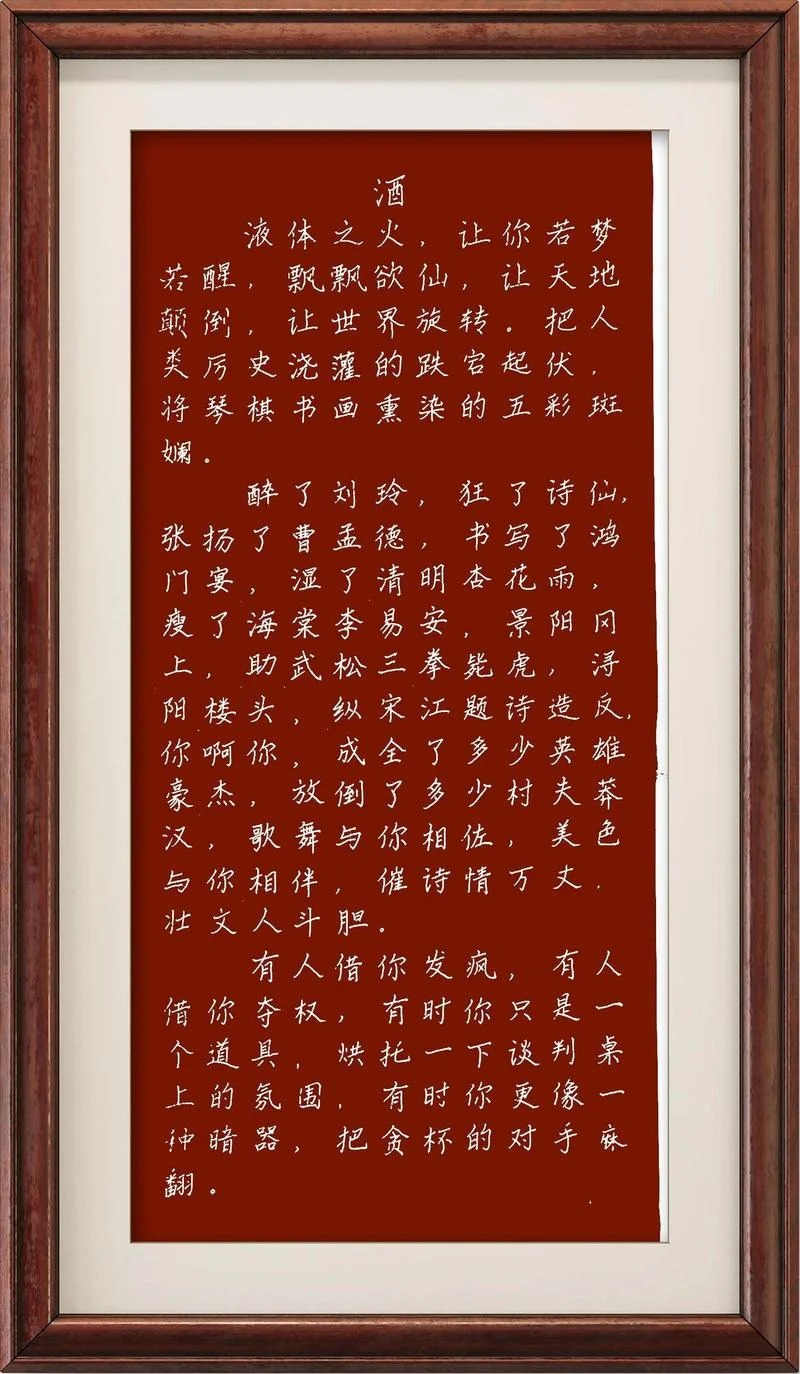 酒
液体之火，让你若梦
若醒，飘飘欲仙，让天地
颠倒，让世界旋转。把人
类历史浇灌的跌宕起伏，
将琴棋书画熏染的五彩斑
斓。
醉了刘玲，狂了诗仙，
张扬了曹孟德，书写了鸿
门宴，湿了清明杏花雨，
瘦了海棠李易安，景阳冈
上，助武松三拳毙虎，浔
阳楼头，纵宋江题诗造反，
你啊你，成全了多少英雄
豪杰，放倒了多少村夫莽
汉，歌舞与你相佐，美色
与你相伴，催诗情万丈，
壮文人斗胆。
有人借你发疯，有人
借你夺权，有时你只是一
个道具，烘托一下谈判桌
上的氛围，有时你更像一
种暗器，把贪杯的对手麻
翻。